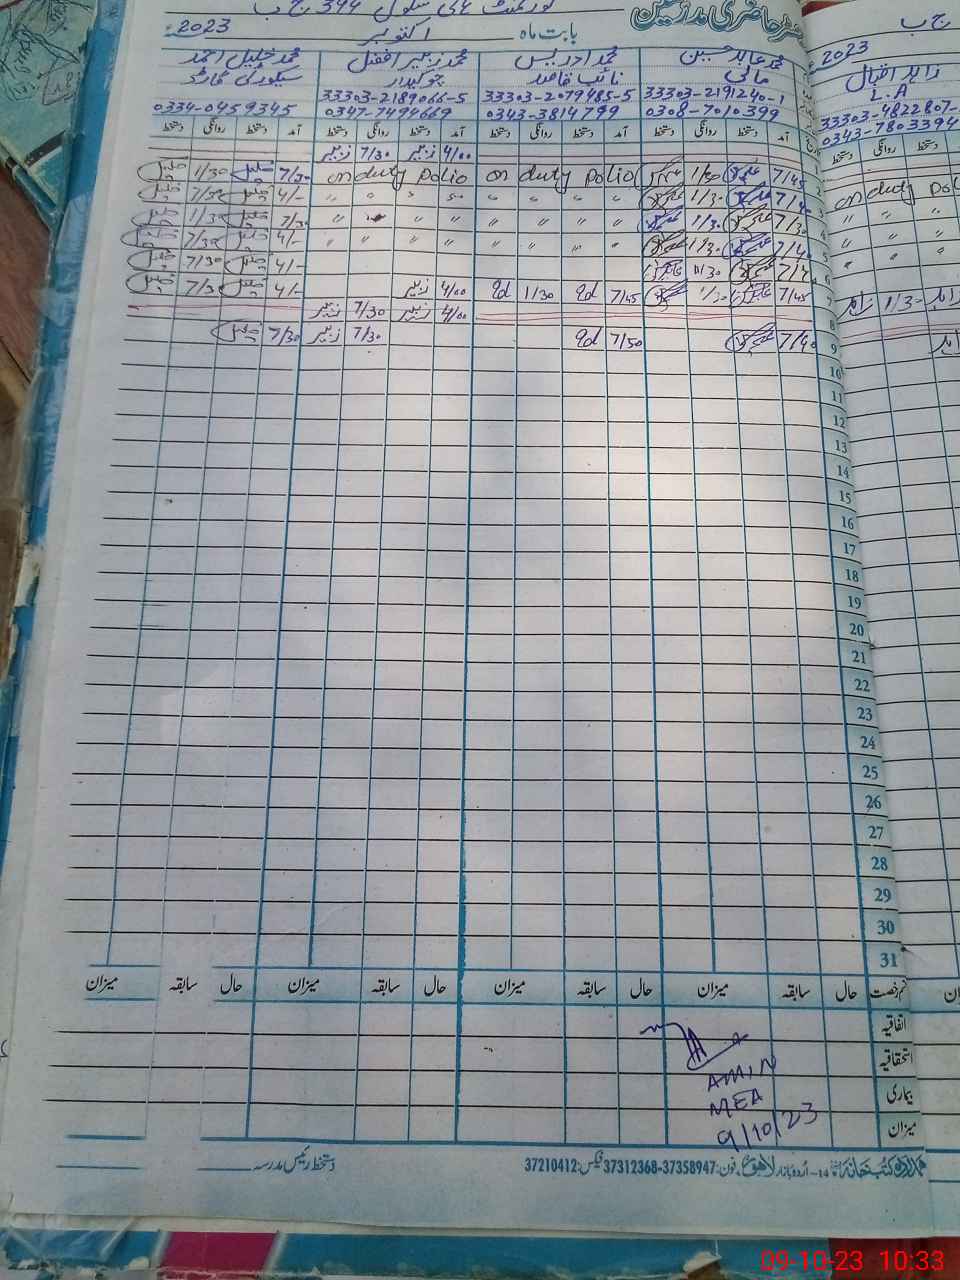 گورنمنٹ ہائی سکول 394 ج ب
رجسٹر حاضری مدرسین
بابت ماہ اکتوبر 2023ء
محمد عابد حسین
مالی
33303-2191240-1
0308-7010399
محمد ادریس
نائب قاصد
33303-2079485-5
0343-3814799
محمد زبیر افضل
چوکیدار
33303-2189066-5
0347-7494669
محمد خلیل احمد
سیکورٹی گارڈ
0334-0459345
آمد دستخط روانگی دستخط آمد دستخط روانگی دستخط آمد دستخط روانگی دستخط آمد دستخط روانگی دستخط
4/00 زبیر 7/30 زبیر
2 7/45 1/30 on duty polio on duty polio 7/30 1/30
3 7/40 1/30 " " " " " " 4/- 7/30
4 7/30 1/30 " " " " " " 7/30 1/30
5 7/40 1/30 " " " " " " 4/- 7/30
6 7/40 1/30 4/- 7/30
7 7/45 1/30 7/45 qd 1/30 qd 4/00 زبیر 4/- 7/30
8 4/00 زبیر 7/30 زبیر
9 7/40 7/50 qd 7/30 زبیر 7/30
10
11
12
13
14
15
16
17
18
19
20
21
22
23
24
25
26
27
28
29
30
31
قسم رخصت حال سابقہ میزان حال سابقہ میزان حال سابقہ میزان حال سابقہ میزان
اتفاقیہ
استحقاقیہ
بیماری
میزان
AMIN
MEA
9/10/23
ہمدرد کتب خانہ 14-اردو بازار لاہور، فون: 37358947-37312368 فیکس: 37210412
دستخط رئیس مدرسہ
ج ب
2023
زاہد اقبال
L.A
33303-4822807-
0343-7803394
دستخط روانگی دستخط
on duty pol
" " "
" " "
" " "
زاہد 1/30 زاہد
زاہد
09-10-23 10:33